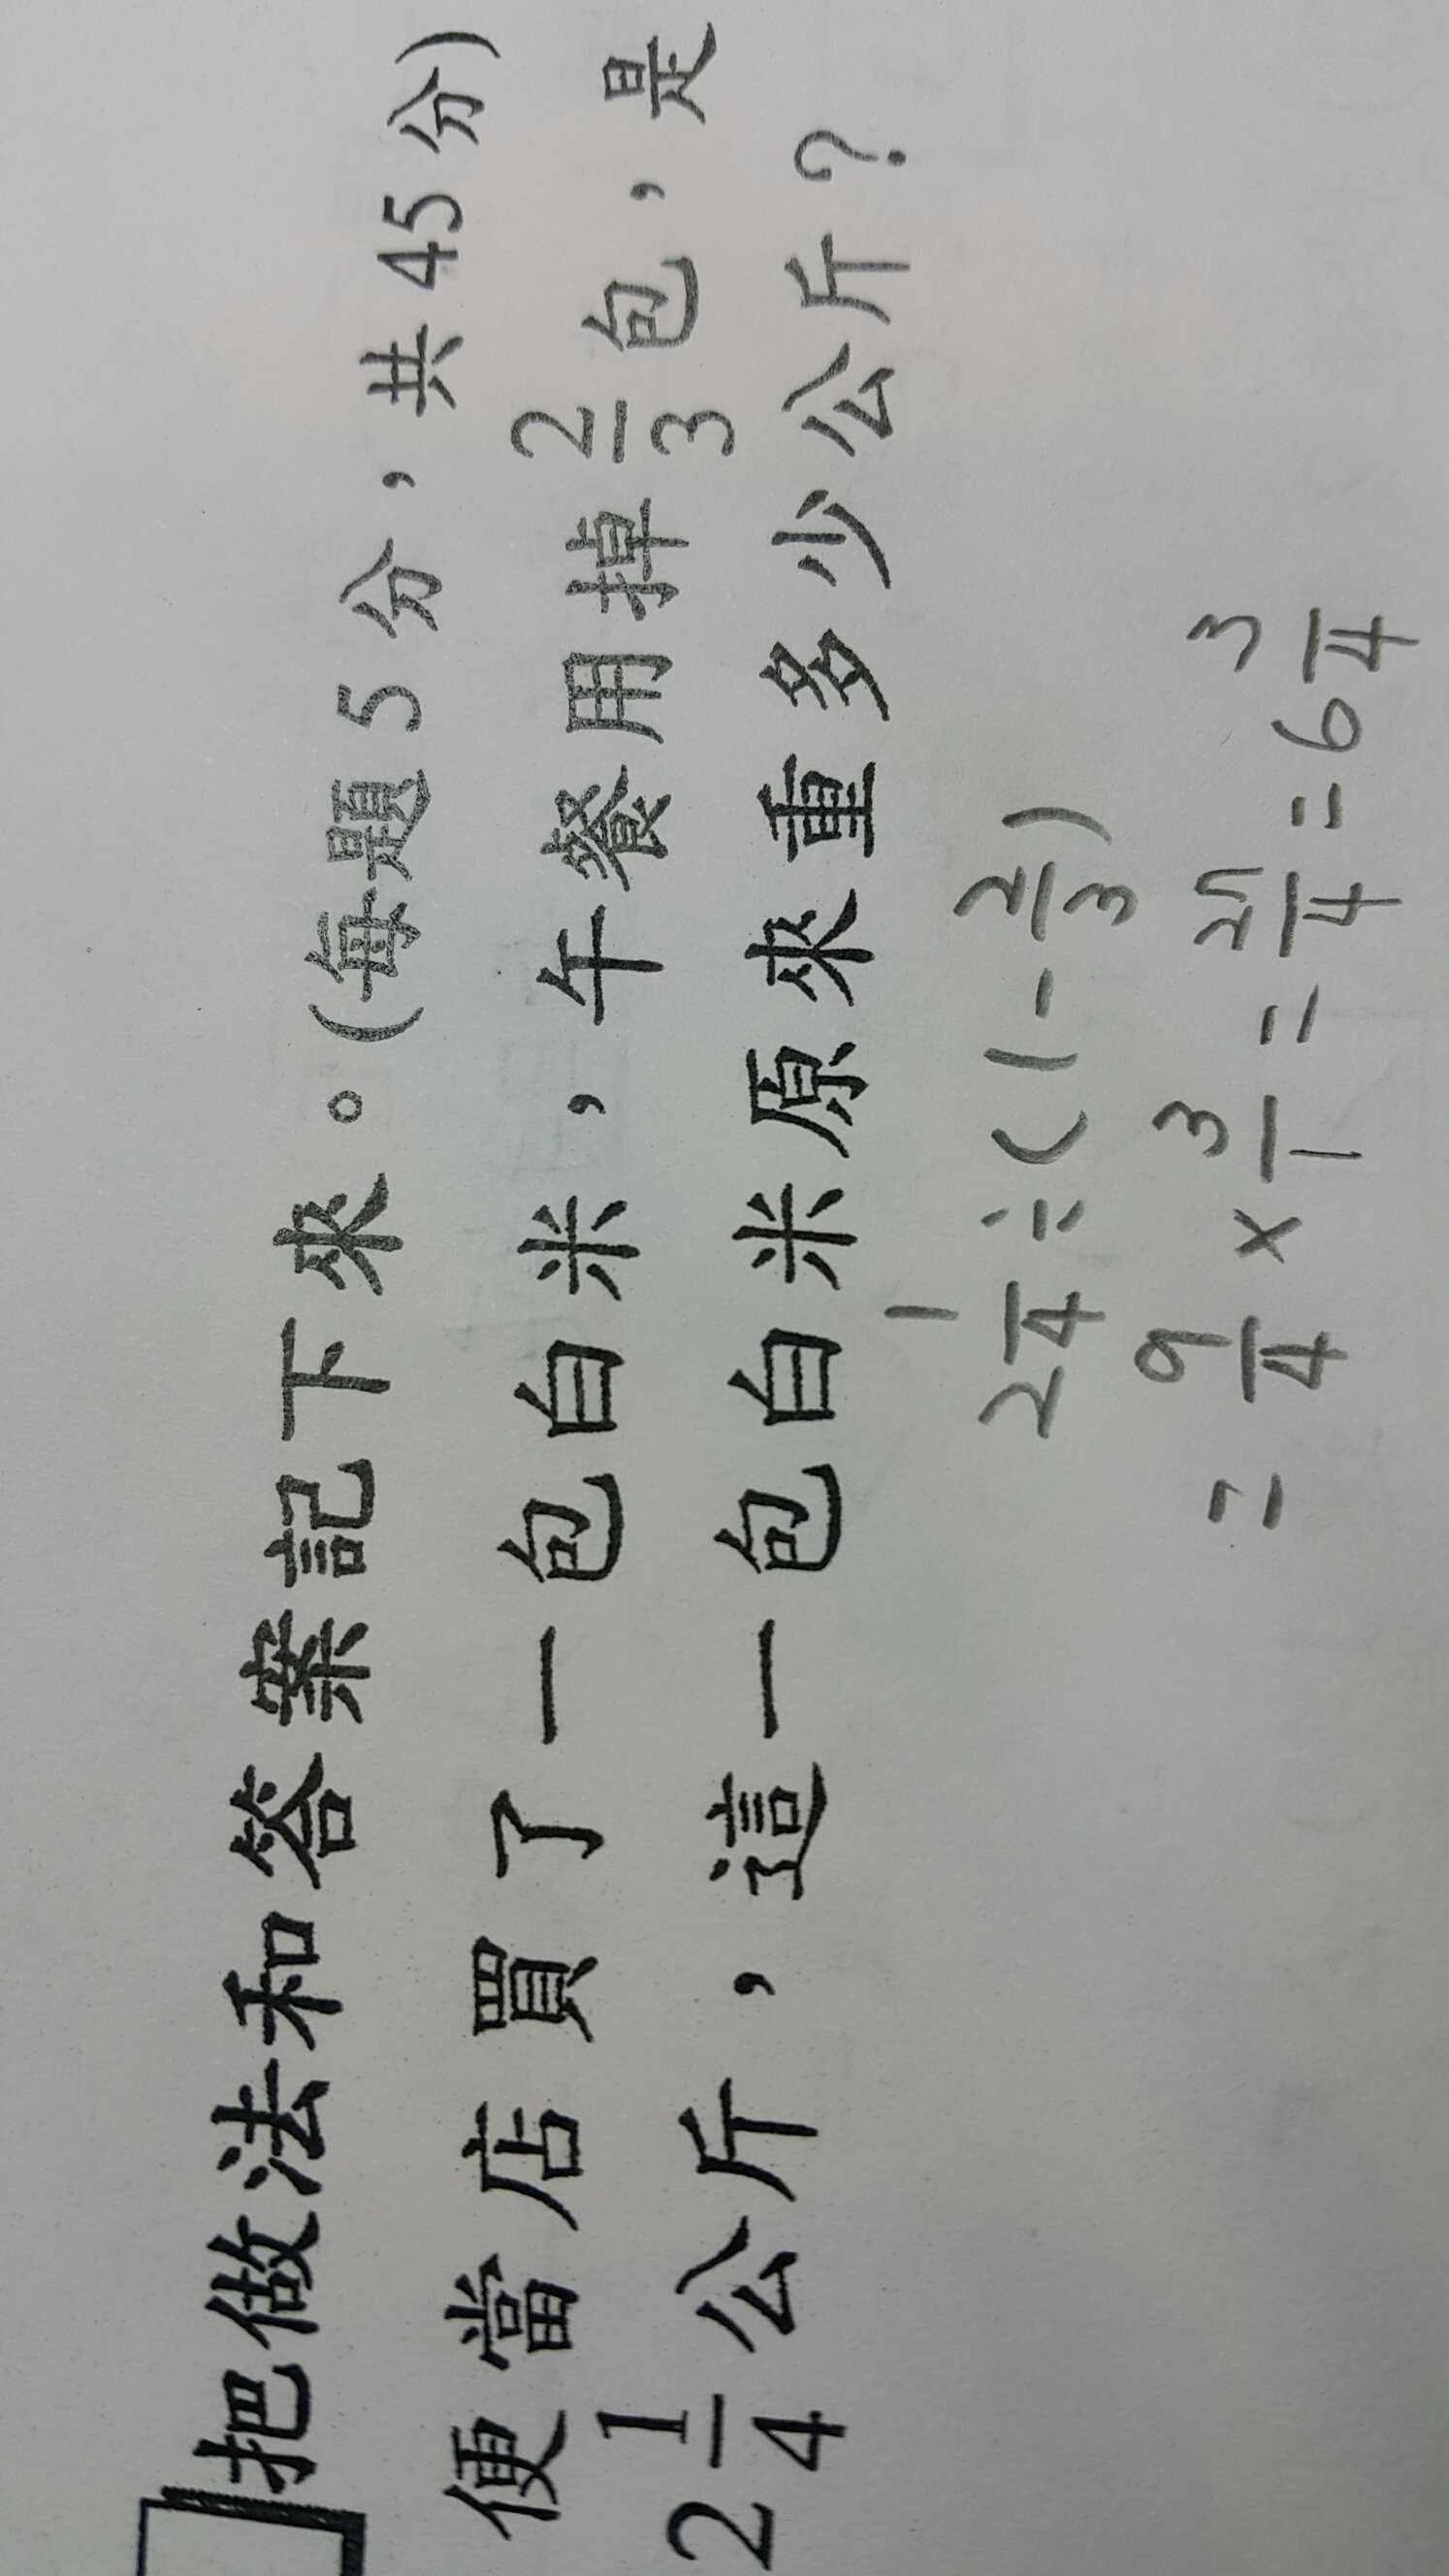 把做法和答案記下來。(每題5分，共45分)
便當店買了一包白米，午餐用掉2/3包，是
2 1/4公斤，這一包白米原來重多少公斤？
2 1/4÷(1-2/3)
=9/4×3/1=27/4=6 3/4